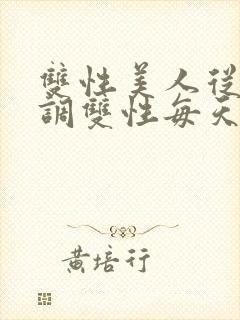 雙性美人從
調雙性每天
黃培行